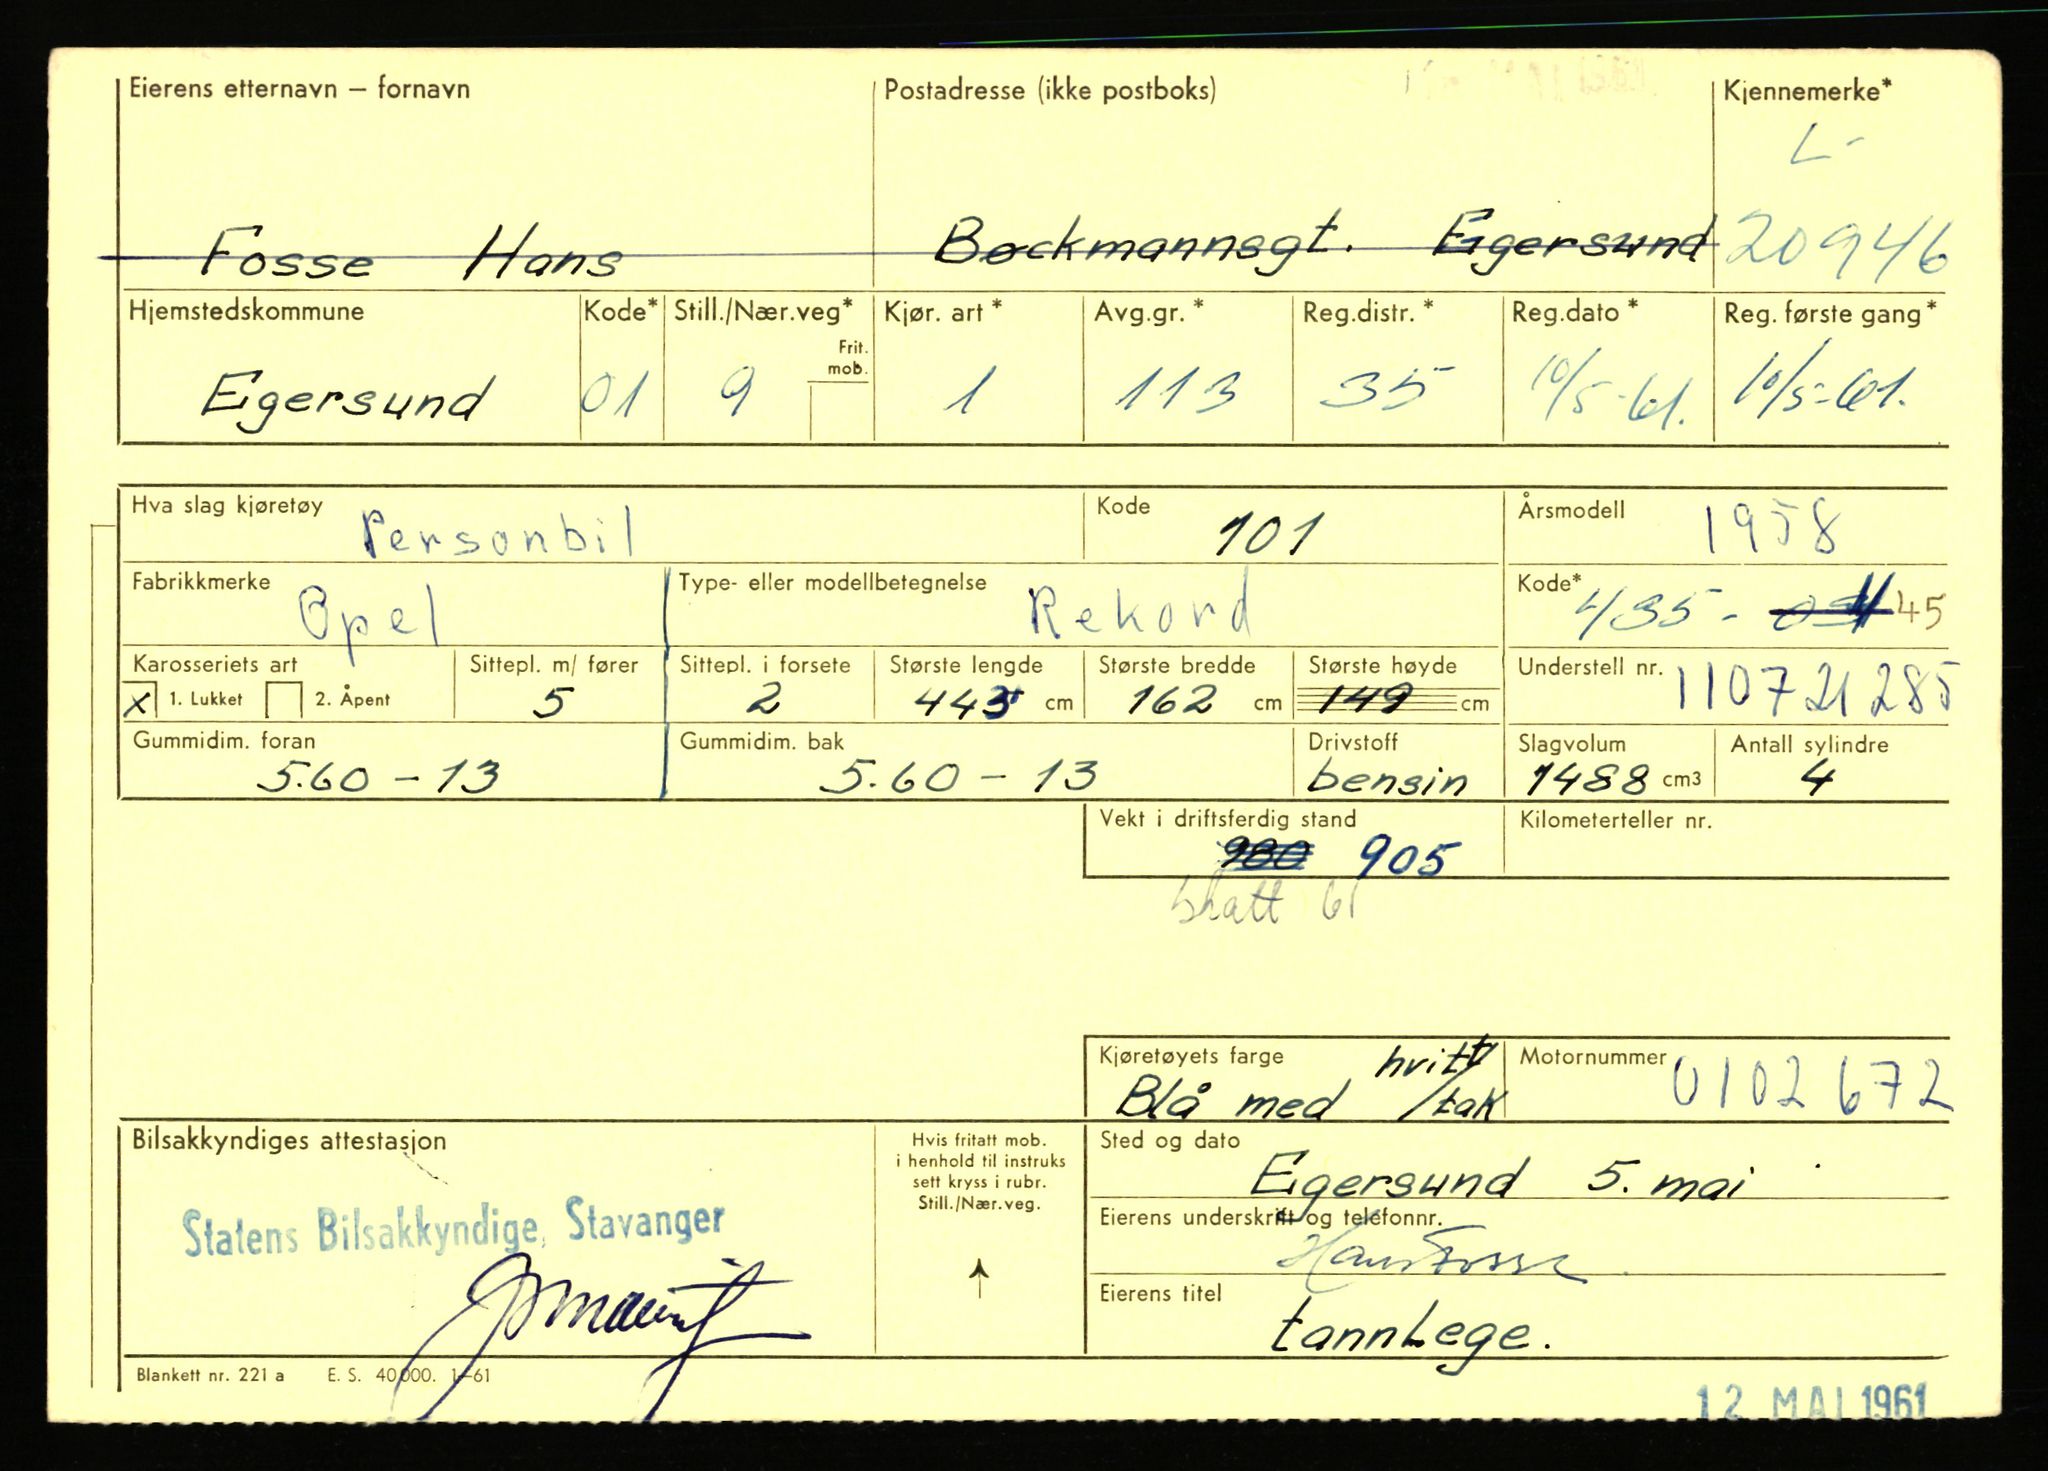 Eierens etternavn – fornavn Postadresse (ikke postboks) Kjennemerke*
L-
Fosse Hans Bøckmannsgt. Egersund 20946
Hjemstedskommune Kode* Still./Nær.veg* Kjør. art* Avg.gr.* Reg.distr.* Reg.dato* Reg. første gang*
Frit. mob.
Egersund 01 9 1 113 35 10/5-61. 10/5-61.
Hva slag kjøretøy Personbil Kode 101 Årsmodell 1958
Fabrikkmerke Opel Type- eller modellbetegnelse Rekord Kode* 435- 45
Karosseriets art Sittepl. m/ fører Sittepl. i forsete Største lengde Største bredde Største høyde Understell nr. 110721285
x 1. Lukket 2. Åpent 5 2 443 cm 162 cm 149 cm
Gummidim. foran Gummidim. bak Drivstoff Slagvolum Antall sylindre
5.60 – 13 5.60 – 13 bensin 1488 cm3 4
Vekt i driftsferdig stand Kilometerteller nr.
900 905
skatt 61
Kjøretøyets farge hvitt Motornummer 0102672
Blå med /tak
Bilsakkyndiges attestasjon
Statens Bilsakkyndige, Stavanger
Hvis fritatt mob.
i henhold til instruks
sett kryss i rubr.
Still./Nær.veg.
Sted og dato
Egersund 5. mai
Eierens underskrift og telefonnr.
Hans Fosse
Eierens titel
tannlege.
Blankett nr. 221 a E. S. 40000. 1–61
12 MAI 1961